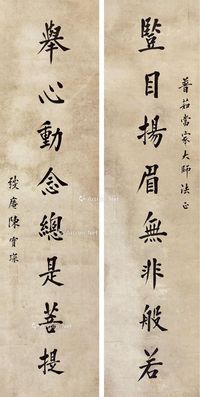 普茹當家大師法正
豎目揚眉無非般若
舉心動念總是菩提
弢庵陳寶琛